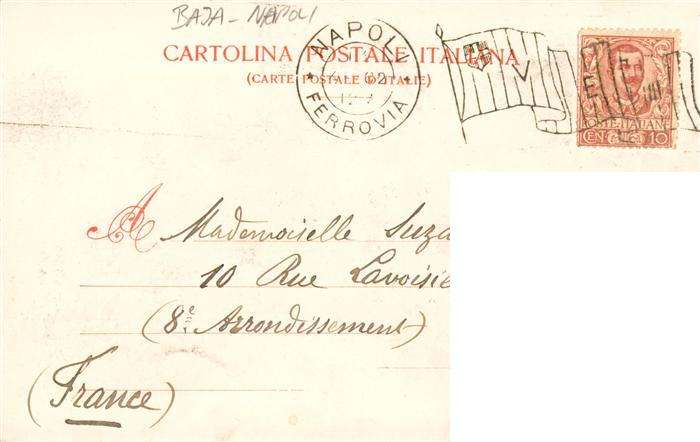 BAJA - NAPOLI
NAPOLI
FERROVIA
CARTOLINA POSTALE ITALIANA
(CARTE POSTALE D'ITALIE)
POSTE ITALIANE
CENT. 10
A Mademoiselle Suza
10 Rue Lavoisie
(8e Arrondissement)
(France)